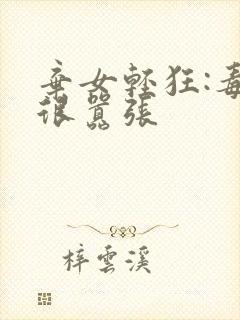 棄女輕狂:毒
很囂張
梓雲溪